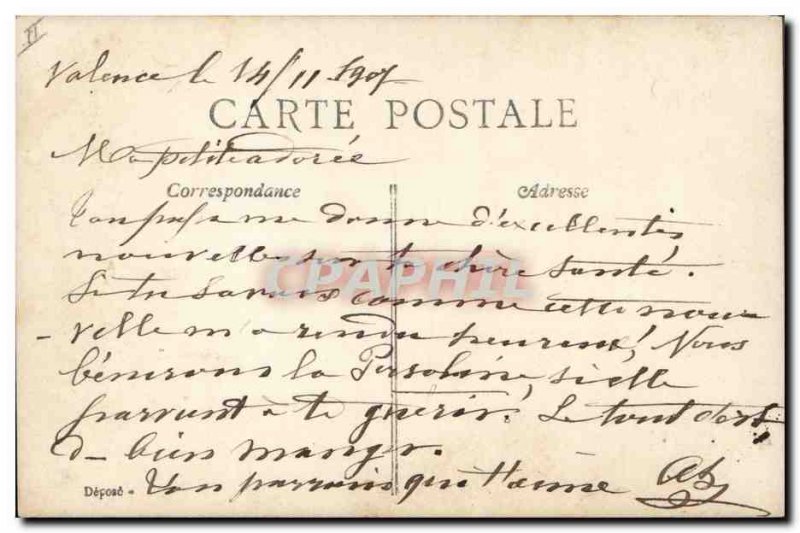 II
Valence le 14/11 1907
CARTE POSTALE
Ma petite adorée
Correspondance Adresse
Ton papa me donne d'excellentes
nouvelle sur ta chère santé.
CPAPHIL
Si tu savais comme cette nou
-velle m'a rendu heureux! Nous
bénirons la si elle
parvient à te guérir. Le tout c'est
d- bien manger.
Déposé - Ton parrain qui t'aime